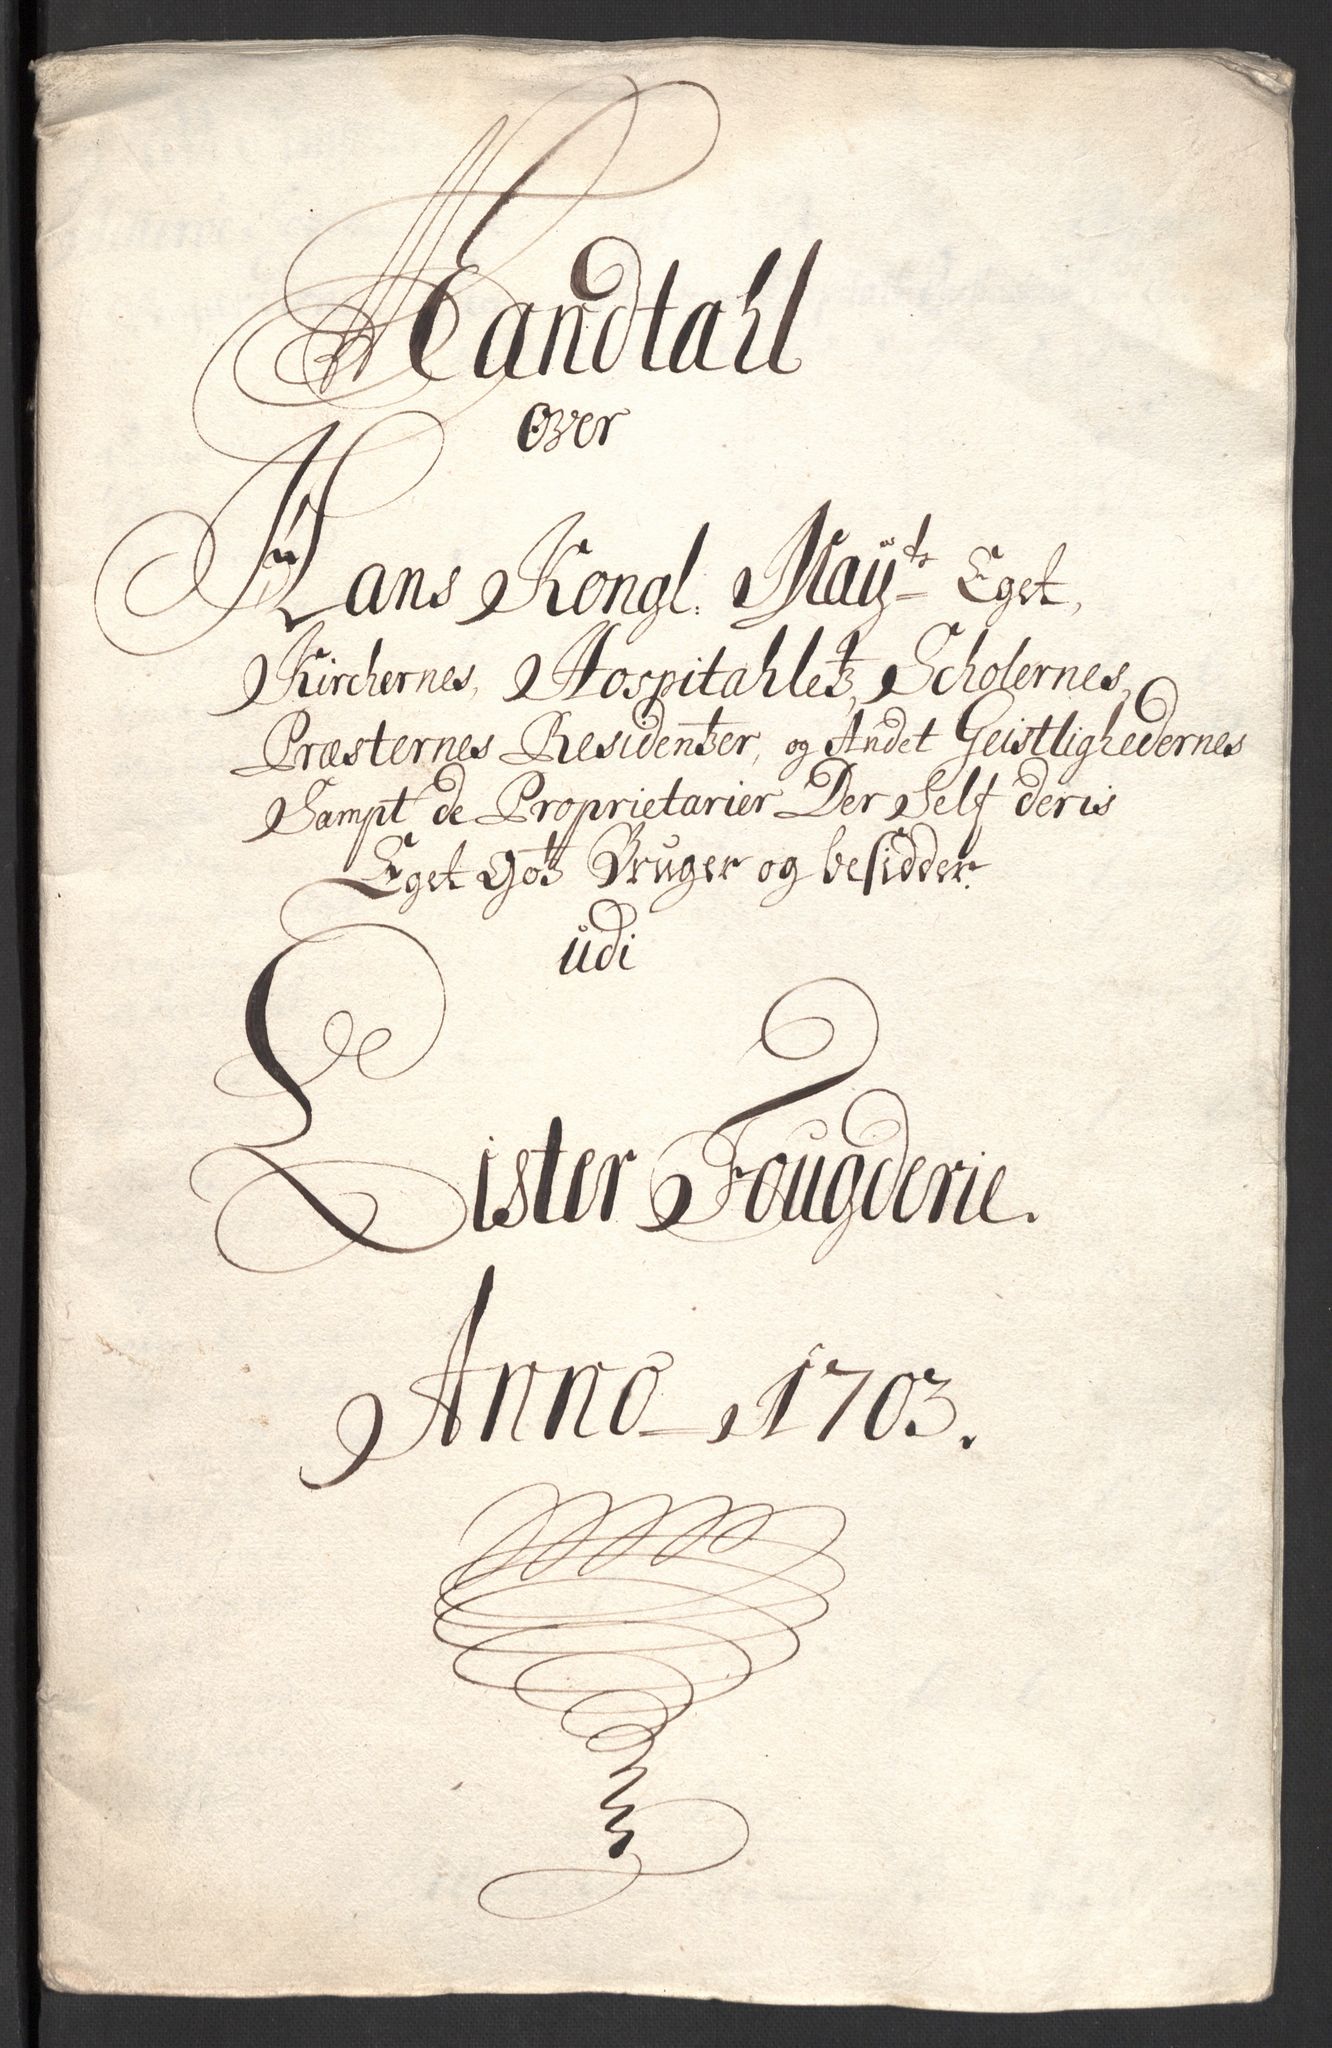 Mandtahl
over
Hans Kongl. Mayts Eget,
Kirchernes, Hospitahletz, Scholernes,
Præsternes Residentzer, og Andet Geistlighedernes
Sampt de Proprietarier Der Self deris
Eget Gotz Bruger og besidder.
udi
Lister Fougderie.
Anno 1703.